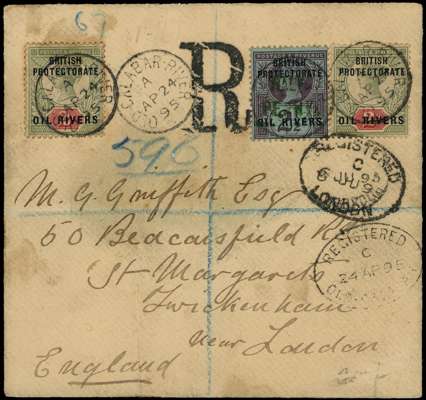 67
BRITISH
PROTECTORATE
OIL RIVERS
OLD CALABAR RIVER
A
AP 24
95
R
BRITISH
PROTECTORATE
OIL RIVERS
BRITISH
PROTECTORATE
OIL RIVERS
596
REGISTERED
C
JU 95
LONDON
M. G. Griffith Esq
50 Beaconsfield Rd
St Margarets
Twickenham
Near London
England
REGISTERED
C
24 AP 95